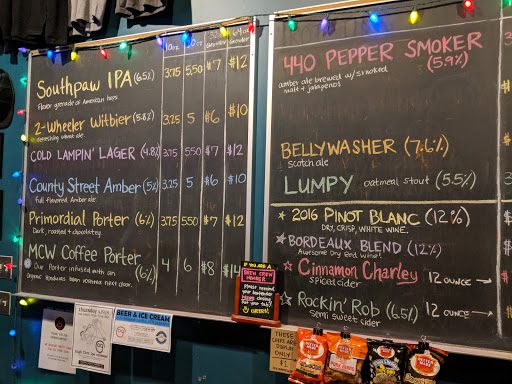 10oz
32oz
64oz
growler
growler
Southpaw IPA (6.5%) 3.75 5.50 $7 $12
Flavor grenade of American hops.
2-Wheeler Witbier (5.8%) 3.25 5 $6 $10
refreshing wheat ale.
COLD LAMPIN' LAGER (4.8%) 3.75 5.50 $7 $12
County Street Amber (5%) 3.25 5 $6 $10
Full-Flavored Amber ale.
Primordial Porter (6%) 3.75 5.50 $7 $12
Dark, roasted + chocolatey.
MCW Coffee Porter (6%) 4 6 $8 $14
Our Porter infused with an
organic Honduras bean
440 PEPPER SMOKER (5.9%)
amber ale brewed w/ smoked
malt + jalapenos
BELLYWASHER (7.6%)
Scotch ale
LUMPY oatmeal stout (5.5%)
2016 PINOT BLANC (12%)
DRY, CRISP, WHITE WINE.
BORDEAUX BLEND (12%)
Awesome Dry Red Wine!
Cinnamon Charley 12 OUNCE →
Spiced cider
Rockin' Rob (6.5%) 12 OUNCE →
Semi Sweet cider
IF YOU ARE A
BREW CREW
MEMBER
Please remind
your bartender
BEER & ICE CREAM
THESE
CHIPS ARE
DISPLAY
ONLY
$1